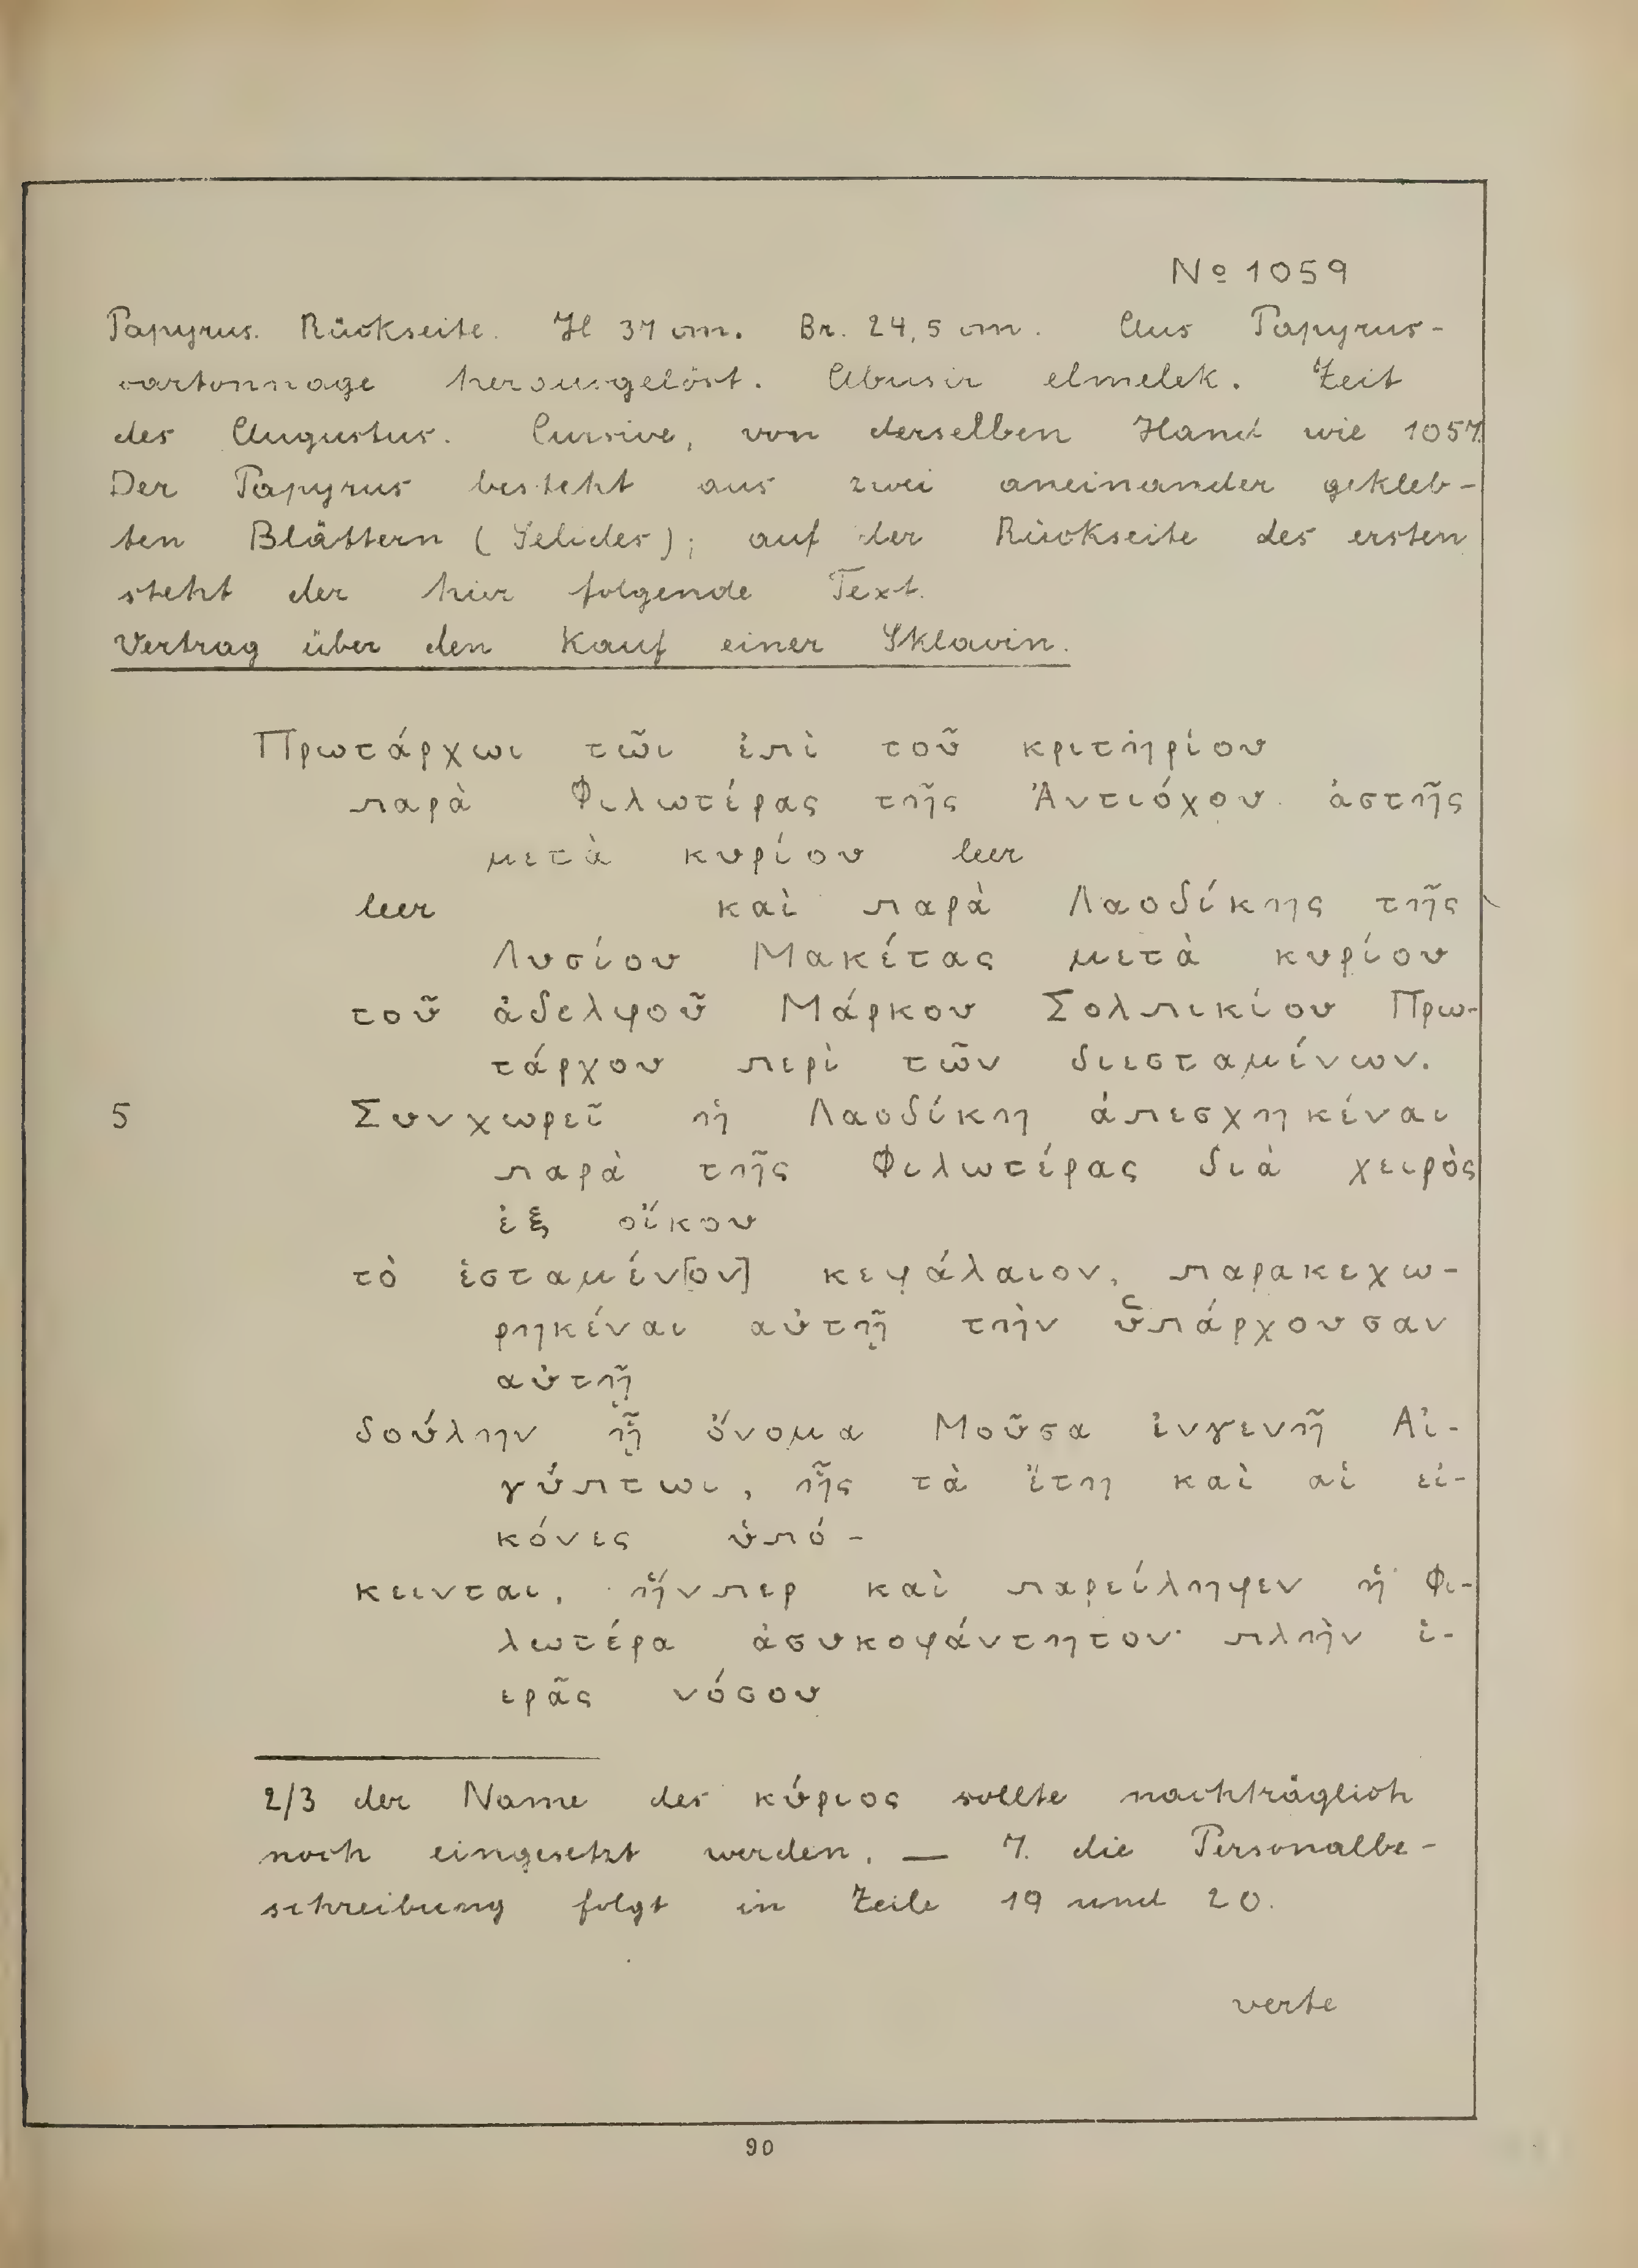 № 1059
Papyrus. Rückseite. H 37 cm. Br. 24,5 cm. Aus Papyrus-
cartonnage herausgelöst. Abusir elmelek. Zeit
des Augustus. Cursive, von derselben Hand wie 1057.
Der Papyrus besteht aus zwei aneinander gekleb-
ten Blättern (Selides); auf der Rückseite des ersten
steht der hier folgende Text.
Vertrag über den Kauf einer Sklavin.
Πρωτάρχωι τῶι ἐπὶ τοῦ κριτηρίου
παρὰ Φιλωτέρας τῆς Ἀντιόχου ἀστῆς
μετὰ κυρίου leer
leer καὶ παρὰ Λαοδίκης τῆς
Λυσίου Μακέτας μετὰ κυρίου
τοῦ ἀδελφοῦ Μάρκου Σολπικίου Πρω-
τάρχου περὶ τῶν διεσταμένων.
5 Συνχωρεῖ ἡ Λαοδίκη ἀπεσχηκέναι
παρὰ τῆς Φιλωτέρας διὰ χειρὸς
ἐξ οἴκου
τὸ ἑσταμέν[ον] κεφάλαιον, παρακεχω-
ρηκέναι αὐτῇ τὴν ὑπάρχουσαν
αὐτῇ
δούλην ᾗ ὄνομα Μοῦσα ἐνγενῆ Αἰ-
γύπτωι, ἧς τὰ ἔτη καὶ αἱ εἰ-
κόνες ὑπό-
κεινται, ἥνπερ καὶ παρείληφεν ἡ Φι-
λωτέρα ἀσυκοφάντητον πλὴν ἱ-
ερᾶς νόσου
2/3 der Name des κύριος sollte nachträglich
noch eingesetzt werden. — 7. die Personalbe-
schreibung folgt in Zeile 19 und 20.
verte
90